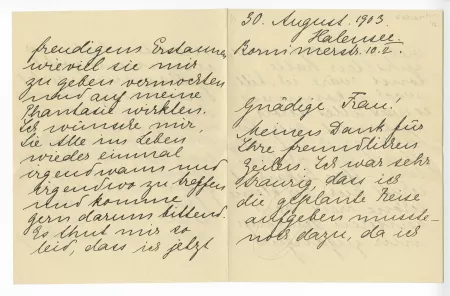 30. August. 1903.
Halensee.
Bornimerstr. 10. I.
Gnädige Frau!
Meinen Dank für
Ihre freundlichen
Zeilen. Ich war sehr
traurig, dass ich
die geplante Reise
aufgeben musste-
noch dazu, da ich
freudigens Erstaunen
wieviel sie mir
zu geben vermochten
und auf meine
Phantasie wirkten.
Ich wünsche mir,
Sie Alle ins Leben
wieder einmal
irgendwann und
irgendwo zu treffen
und komme
gern darum bittend.
Es thut mir so
leid, dass ich jetzt